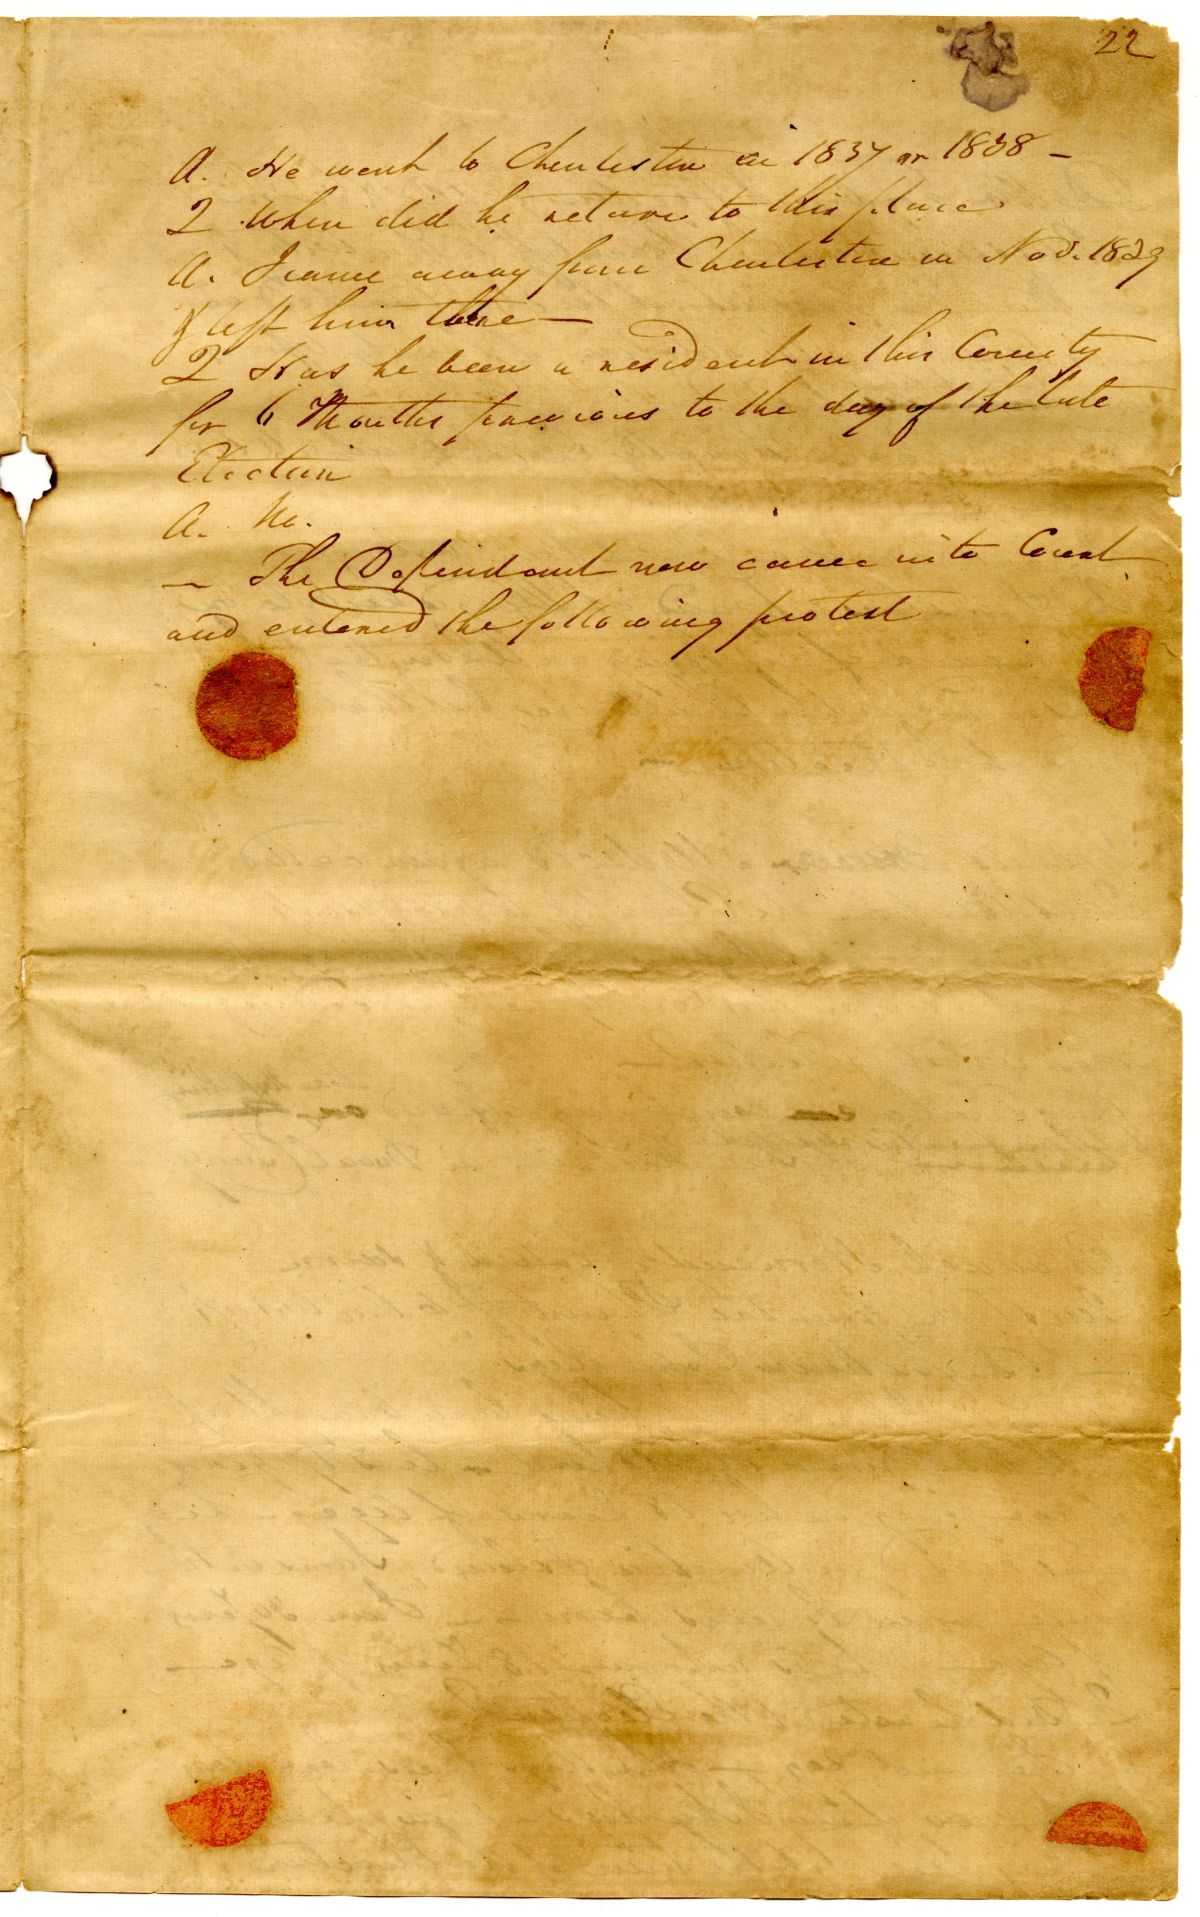 22
A. He went to Charleston in 1837 or 1838 -
Q When did he return to this place
A. I came away from Charleston in Nov. 1839
& left him there —
Q Has he been a resident in this County
for 6 Months previous to the day of the late
Election
A. No.
— The Defendant now came into Court
and entered the following protest